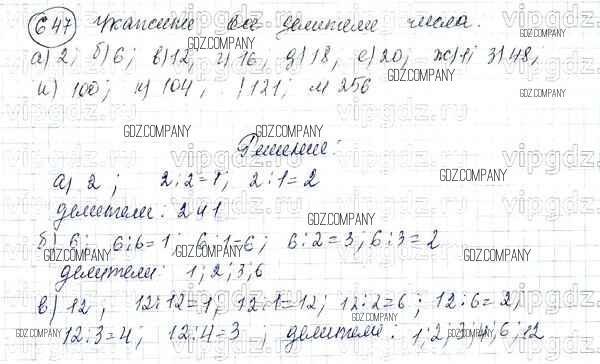 647 Укажите все делители числа.
а) 2; б) 6; в) 12, г) 16, д) 18, е) 20; ж) 1; з) 48,
и) 100; к) 104, 121; м 256
Решение:
а) 2; 2:2=1; 2:1=2
делители: 2 и 1
б) 6; 6:6=1; 6:1=6; 6:2=3, 6:3=2
делители: 1; 2; 3; 6
в) 12, 12:12=1, 12:1=12; 12:2=6; 12:6=2,
12:3=4; 12:4=3, делители: 1; 2; 3; 4; 6, 12
GDZ.COMPANY
vipgdz.ru